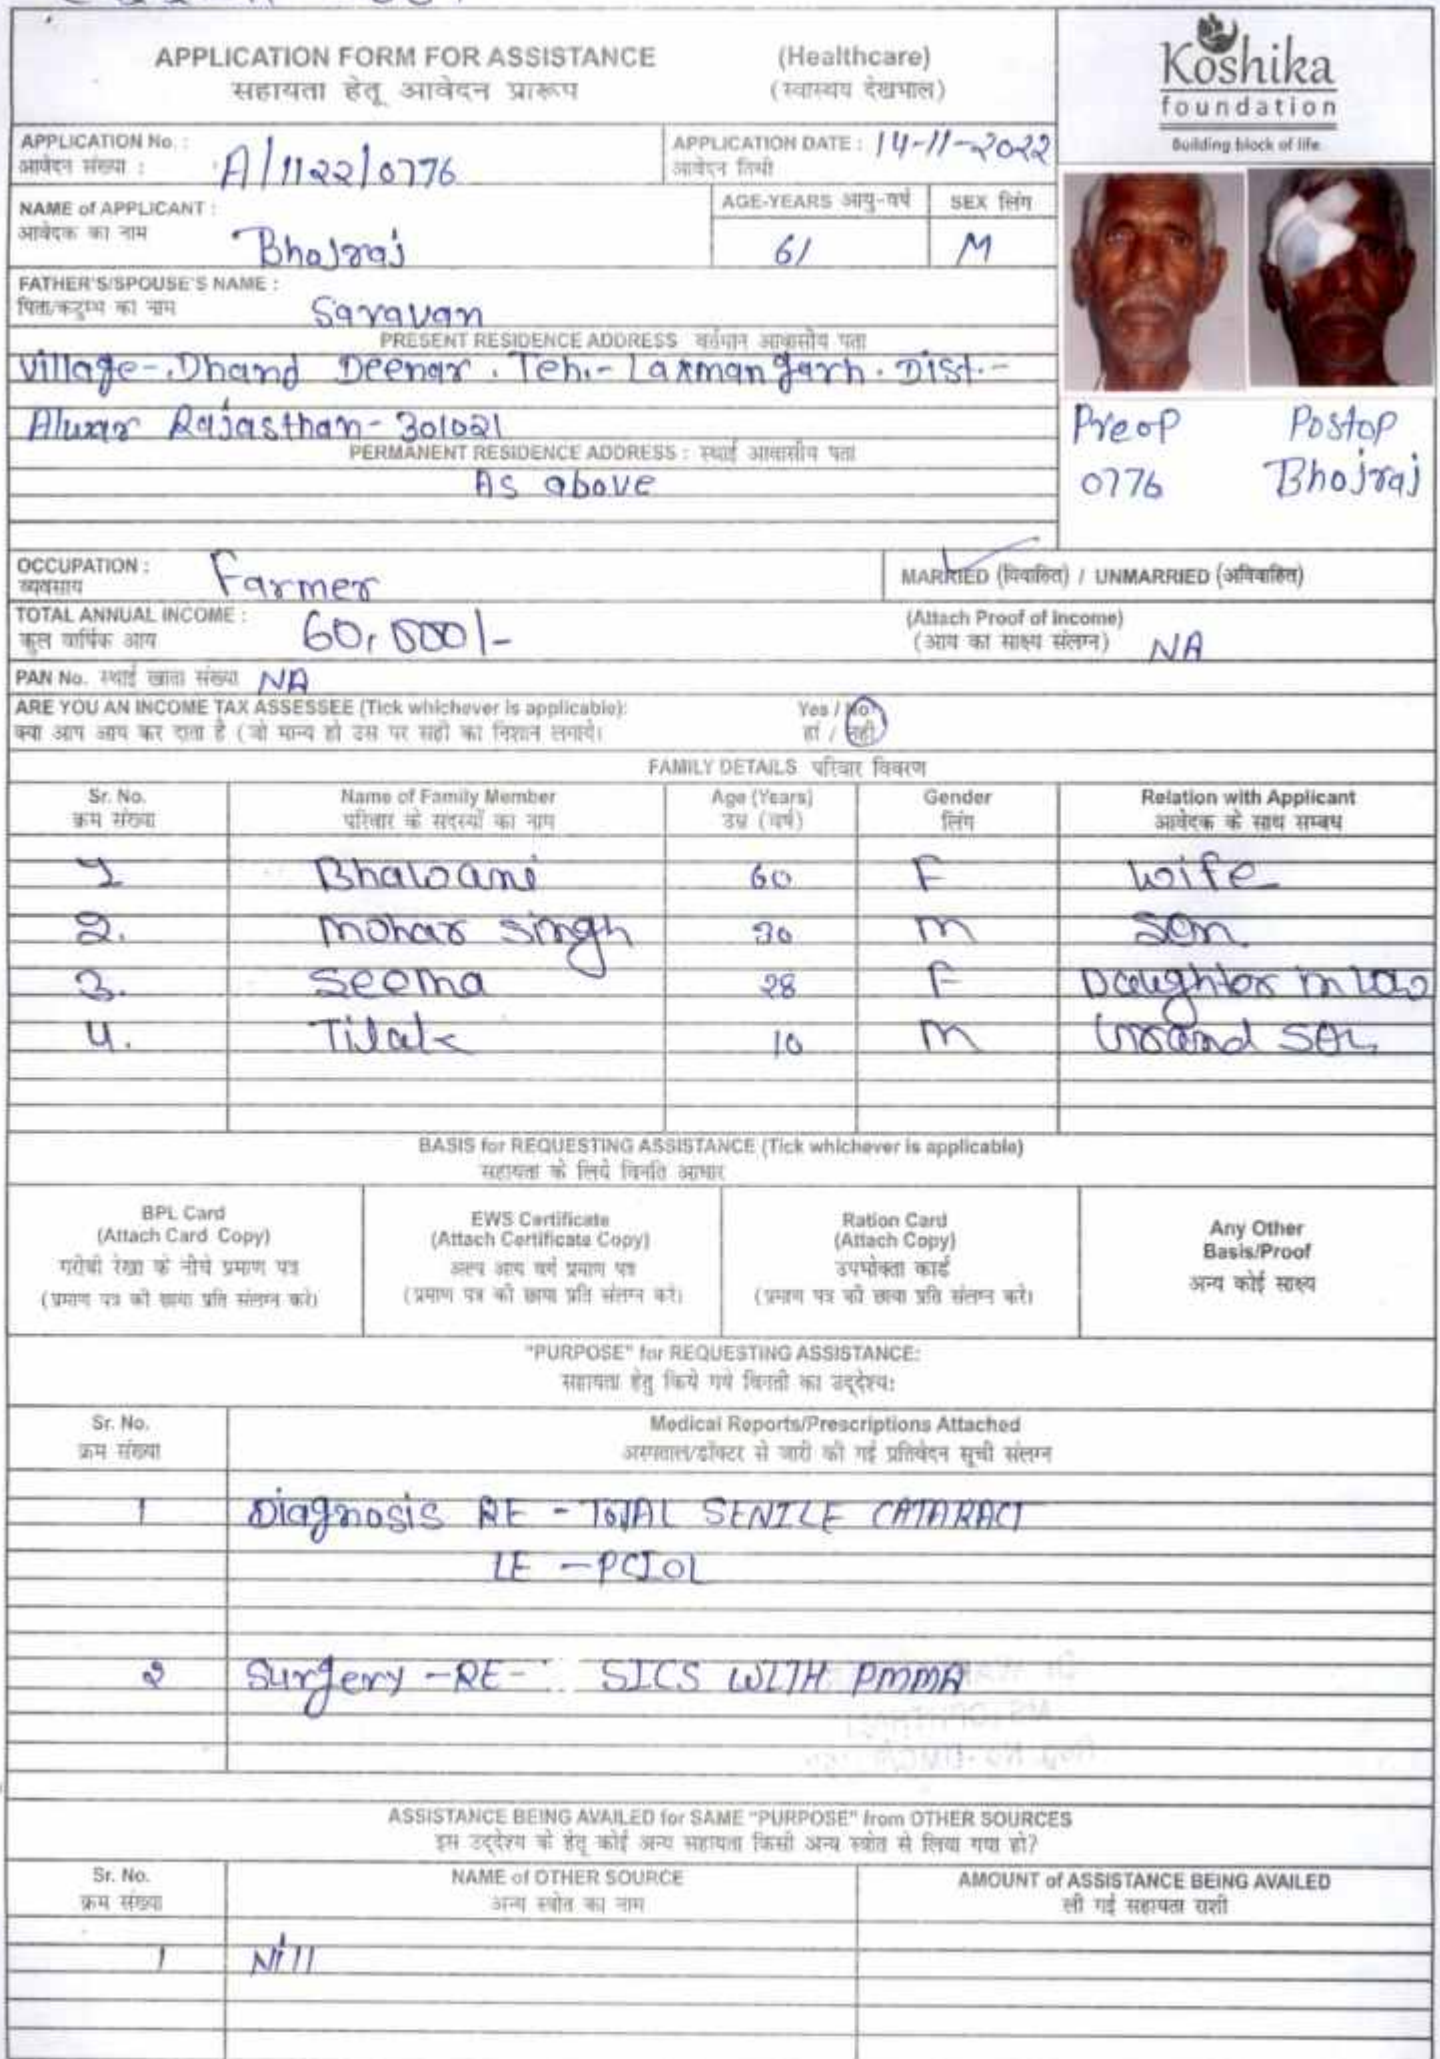 APPLICATION FORM FOR ASSISTANCE (Healthcare)
सहायता हेतू आवेदन प्रारूप (स्वास्थय देखभाल)
Koshika
foundation
Building block of life
APPLICATION No. : A/1122/0776
आवेदन संख्या :
APPLICATION DATE : 14-11-2022
आवेदन तिथी
NAME of APPLICANT : Bhojraj
आवेदक का नाम
AGE-YEARS आयु-वर्ष 61
SEX लिंग M
FATHER'S/SPOUSE'S NAME : Saravan
पिता/कटुम्ब का नाम
PRESENT RESIDENCE ADDRESS वर्तमान आवासीय पता
Village-Dhand Deenar. Teh.- Laxmangarh. Dist.-
Alwar Rajasthan-301021
PERMANENT RESIDENCE ADDRESS : स्थाई आवासीय पता
As above
Preop Postop
0776 Bhojraj
OCCUPATION : Farmer
व्यवसाय
MARRIED (विवाहित) / UNMARRIED (अविवाहित)
TOTAL ANNUAL INCOME : 60,000/-
कुल वार्षिक आय
(Attach Proof of Income)
(आय का साक्ष्य संलग्न) NA
PAN No. स्थाई खाता संख्या NA
ARE YOU AN INCOME TAX ASSESSEE (Tick whichever is applicable): Yes / No
क्या आप आय कर दाता है (जो मान्य हो उस पर सही का निशान लगाये। हां / नही
FAMILY DETAILS परिवार विवरण
Sr. No. Name of Family Member Age (Years) Gender Relation with Applicant
क्रम संख्या परिवार के सदस्यों का नाम उम्र (वर्ष) लिंग आवेदक के साथ सम्बध
1 Bhawani 60 F wife
2. Mohar Singh 30 m Son.
3. Seema 28 F Daughter in law
4. Tilak 10 m Grand Son
BASIS for REQUESTING ASSISTANCE (Tick whichever is applicable)
सहायता के लिये विनति आधार
BPL Card
(Attach Card Copy)
गरीबी रेखा के नीचे प्रमाण पत्र
(प्रमाण पत्र की छाया प्रति संलग्न करे।
EWS Certificate
(Attach Certificate Copy)
अल्प आय वर्ग प्रमाण पत्र
(प्रमाण पत्र की छाया प्रति संलग्न करे।
Ration Card
(Attach Copy)
उपभोक्ता कार्ड
(प्रमाण पत्र की छाया प्रति संलग्न करे।
Any Other
Basis/Proof
अन्य कोई साक्ष्य
"PURPOSE" for REQUESTING ASSISTANCE:
सहायता हेतु किये गये विनती का उद्देश्य:
Sr. No. Medical Reports/Prescriptions Attached
क्रम संख्या अस्पताल/डॉक्टर से जारी की गई प्रतिवेदन सूची संलग्न
1 Diagnosis RE - TOTAL SENILE CATARACT
LE - PCIOL
2 Surgery -RE- SICS WITH PMMA
ASSISTANCE BEING AVAILED for SAME "PURPOSE" from OTHER SOURCES
इस उद्देश्य के हेतू कोई अन्य सहायता किसी अन्य स्त्रोत से लिया गया हो?
Sr. No. NAME of OTHER SOURCE AMOUNT of ASSISTANCE BEING AVAILED
क्रम संख्या अन्य स्त्रोत का नाम ली गई सहायता राशी
1 Nill